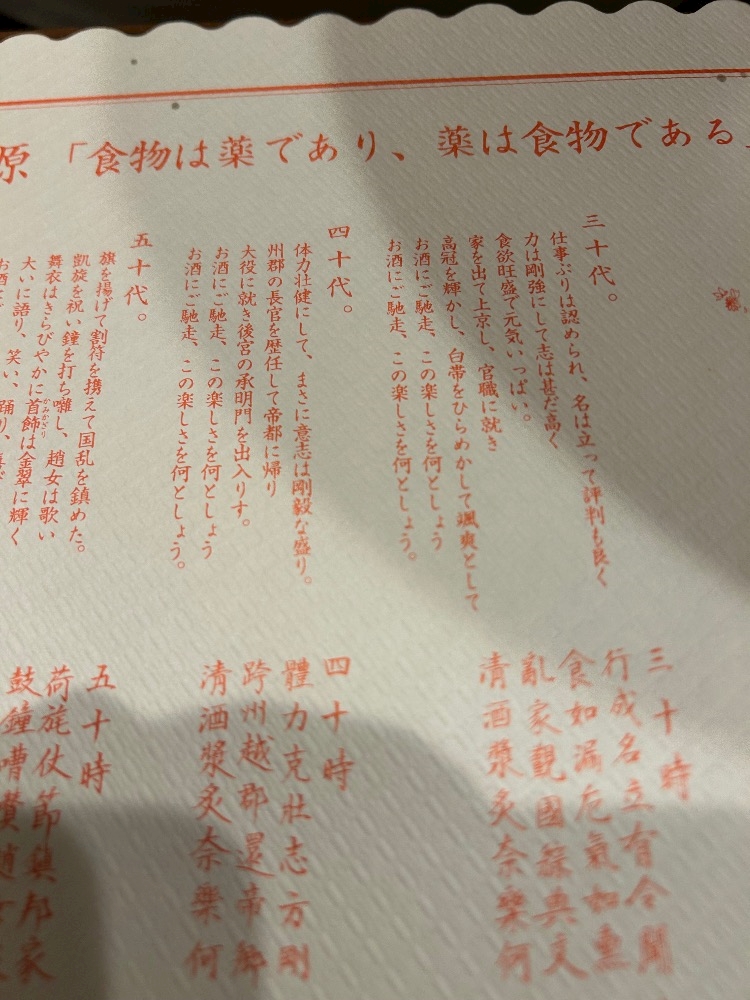 原「食物は薬であり、薬は食物である
三十代。
仕事ぶりは認められ、名は立って評判も良く
力は剛強にして志は甚だ高く
食欲旺盛で元気いっぱい。
家を出て上京し、官職に就き
高冠を輝かし、白帯をひらめかして颯爽として
お酒にご馳走、この楽しさを何としょう
お酒にご馳走、この楽しさを何としょう。
四十代。
体力壮健にして、まさに意志は剛毅な盛り。
州郡の長官を歴任して帝都に帰り
大役に就き後宮の承明門を出入りす。
お酒にご馳走、この楽しさを何としょう
お酒にご馳走、この楽しさを何としょう。
五十代。
旗を揚げて割符を携えて国乱を鎮めた。
凱旋を祝い鐘を打ち囃し、趙女は歌い
舞衣はきらびやかに首飾は金翠に輝く
かみかざり
大いに語り、笑い、踊り、喜び
三十時
行成名立有令聞
食如漏卮氣如熏
亂家觀國綜典文
清酒漿炙奈樂何
四十時
體力克壯志方剛
跨州越郡還帝
清酒漿炙奈樂何
五十時
荷旄仗節鎮邦家
鼓鐘嘈囋趙女